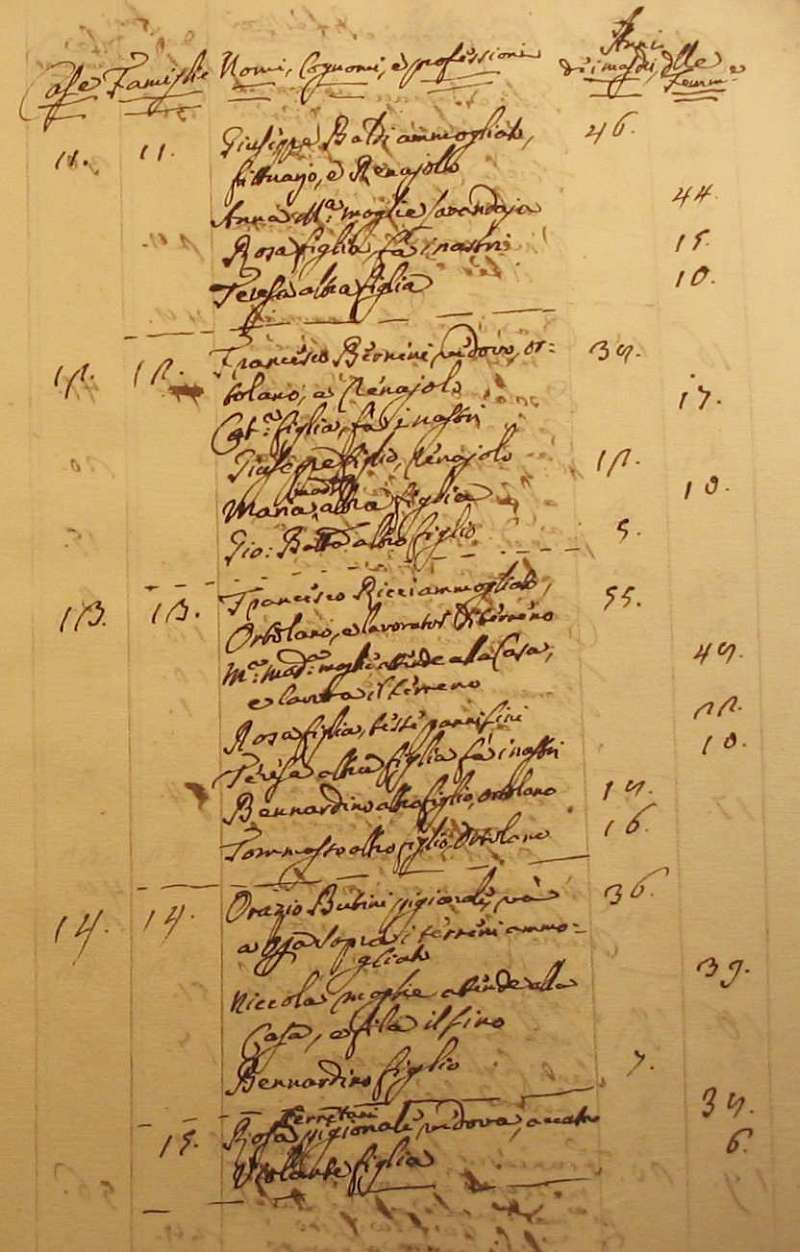 Case Famiglie Nomi, Cognomi, e professioni Anni
de i maschi, delle
Femmine
11. 11. Giuseppe Baldi ammogliato, 46.
fittuario, e Renajolo
Anna M.a moglie lavandaja 44.
Rosa figlia fà i nastri 15.
Teresa altra figlia 10.
12. 12. Francesco Bernini vedovo, or=
tolano, e Renajolo
Cat.a figlia, fà i nastri 17.
Giuseppe figlio, Renajolo 12.
Maria altra figlia 10.
Gio: Batta altro figlio 5.
13. 13. Francesco Ricci ammogliato, 55.
Ortolano, e lavorator di terreno
M.a Mad.a moglie attende alla Casa,
e lavora il terreno
Rosa figlia, tesse panni fini 22.
Teresa altra figlia fà i nastri 10.
Bernardino altro figlio, ortolano
Tommasso altro figlio, Ortolano 16.
14. 14. Orazio Bubini pigionale, và
a opra sopra i terreni ammo=
gliato 36.
Niccola moglie attende alla 39.
Casa, e fila il lino
Bernardino figlio 7.
Ferretani
15. Rosa pigionale vedova, accatta
Violante figlia 6.